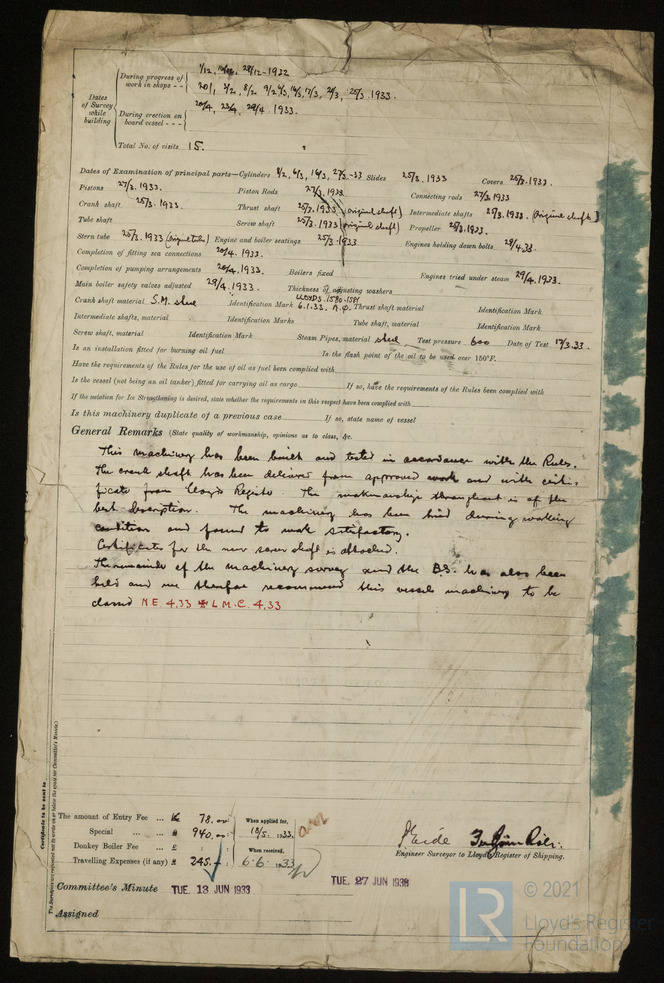 1/12, 28/12-1932
During progress of work in shops - -
20/1, 3/2, 8/2, 9/2, 6/3, 16/3, 17/3, 21/3, 25/3 1933.
Dates of Survey while building
20/4, 23/4, 28/4. 1933.
During erection on board vessel - - -
Total No. of visits 15.
Dates of Examination of principal parts—Cylinders 8/2, 6/3, 16/3, 27/3-33 Slides 25/3. 1933 Covers 25/3. 1933.
Pistons 27/3. 1933. Piston Rods 27/3. 1933 Connecting rods 27/3. 1933
Crank shaft 25/3. 1933. Thrust shaft 25/3. 1933 (original shaft) Intermediate shafts 25/3. 1933. (original shafts)
Tube shaft Screw shaft 25/3. 1933 (original shaft) Propeller 25/3. 1933.
Stern tube 25/3. 1933 (original tube) Engine and boiler seatings 25/3. 1933 Engines holding down bolts 28/4.33.
Completion of fitting sea connections 20/4. 1933.
Completion of pumping arrangements 20/4. 1933. Boilers fixed Engines tried under steam 29/4. 1933.
Main boiler safety valves adjusted 28/4. 1933. Thickness of adjusting washers
Crank shaft material S.M. steel Identification Mark LLOYDS 1580-1581 6.1.33. A.Ø. Thrust shaft material Identification Mark
Intermediate shafts, material Identification Marks Tube shaft, material Identification Mark
Screw shaft, material Identification Mark Steam Pipes, material steel Test pressure 600 Date of Test 17/3.33.
Is an installation fitted for burning oil fuel Is the flash point of the oil to be used over 150°F.
Have the requirements of the Rules for the use of oil as fuel been complied with
Is the vessel (not being an oil tanker) fitted for carrying oil as cargo If so, have the requirements of the Rules been complied with
If the notation for Ice Strengthening is desired, state whether the requirements in this respect have been complied with
Is this machinery duplicate of a previous case If so, state name of vessel
General Remarks (State quality of workmanship, opinions as to class, &c.
This machinery has been built and tested in accordance with the Rules.
The crank shaft has been delivered from approved work and with certi-
ficate from Lloyds Register. The workmanship throughout is of the
best description. The machinery has been tried during working
condition and found to work satisfactory.
Certificates for the new screw shaft is attached.
The remainder of the machinery survey and the B.S. has also been
held and we therefore recommend this vessels machinery to be
classed N.E. 4,33 ✠ L.M.C. 4,33
Certificate to be sent to
(The Surveyors are requested not to write on or below the space for Committee's Minute.)
The amount of Entry Fee ... Kr 78.00 When applied for,
Special ... 940.00 18/5. 1933.
Donkey Boiler Fee ... £ When received,
Travelling Expenses (if any) 245. 6.6. 1933
Engineer Surveyor to Lloyd's Register of Shipping.
Committee's Minute TUE. 13 JUN 1933 TUE. 27 JUN 1933
Assigned
LR © 2021
Lloyd's Register
Foundation